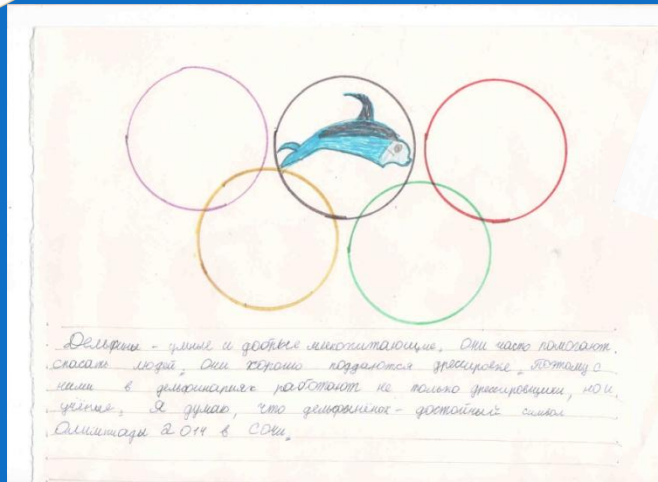 Дельфины - умные и добрые млекопитающие, они часто помогают
спасать людей, они хорошо поддаются дрессировке, поэтому с
ними в дельфинариях работают не только дрессировщики, но и
учёные, Я думаю, что дельфинёнок - достойный символ
Олимпиады 2014 в Сочи.